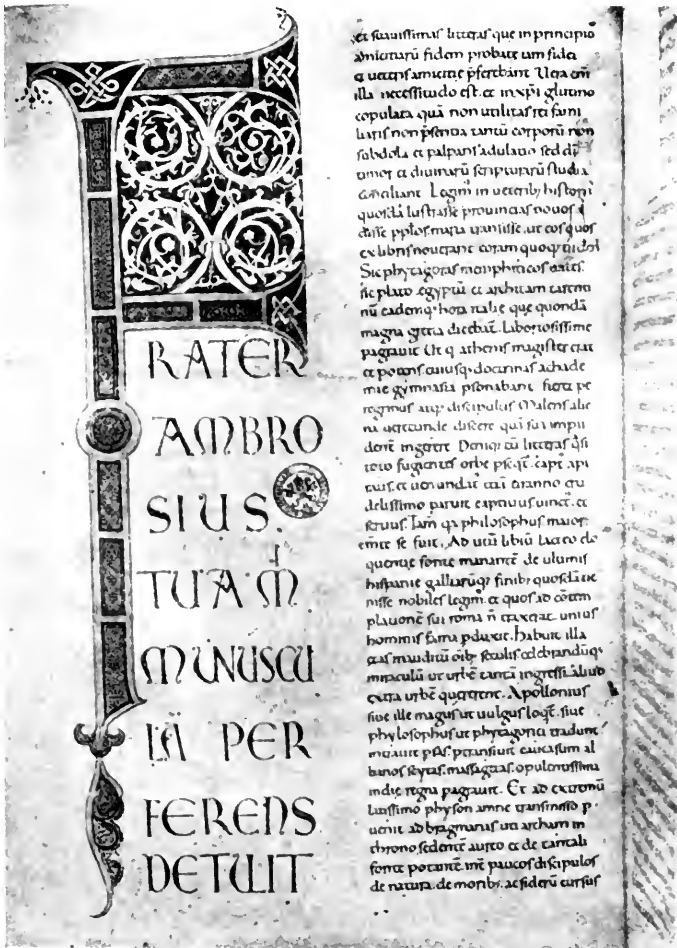 F
RATER
AMBRO
SIUS.
TUA M̄
MUNUSCU
LA PER
FERENS
DETULIT
et suauissimas litteras que in principio
amicitiarū fidem probate iam fidei
et ueteris amicitie p̄ferebant. Uera em̄
illa necessitudo est. et in xp̄i glutino
copulata quā non utilitas rei fami
liaris non p̄sentia tantū corporū non
subdola et palpans adulatio sed dī
timor et diuinarū scripturarū studia
conciliant. Legim in ueterib; historiis
quosdā lustrasse prouincias nouos
disse pp̄los maria transisse. ut eos quos
ex libris nouerant coram quoq;
Sic phytagoras menphiticos uates.
sic plato egyptū et architam tarenti
nū eandemq; horā italie que quondā
magna gretia dicebat̄. laboriosissime
pagrauit. Ut q̄ athenis magister erat
et potens cuiusq; doctrinas achade
mie gymnasia psonabant fieret pe
regrinus atq; discipulus. Malens alie
na uerecunde discere quā sua impu
dent̄ ingerere. Deniq; cū litteras q̄si
toto fugientes orbe pseq̄t̄. capt᷒ a pi
ratis. et uenundat᷒ etiā tiranno cru
delissimo paruit captiuus uinct᷒. et
seruus. Tam̄ q̄a philosophus maior
emēte se fuit. Ad titū libiū lacteo elo
quentie fonte manantē de ultimis
hispanie galliarūq; finib; quosdā ue
nisse nobiles legim᷒. et quos ad cōtem
plationē sui roma n̄ traxerat unius
hominis fama pduxit. Habuit illa
etas inauditū oīb; seculis celebrandūq;
miraculū ut urbē tantā ingressi. aliud
extra urbē quererent. Apollonius
siue ille magus ut uulgus loq̄t̄. siue
phylosophus ut phytagorici tradunt
intrauit psas. ptransiuit caucasum al
banos scytas. massagetas. opulentissima
indie regna pagrauit. Et ad extremū
latissimo physon amne transmisso p
uenit ad bragmanas ut iarcham in
throno sedentē aureo et de tantali
fonte potantē. int᷒ paucos discipulos
de natura. de morib᷒. ac siderū cursus